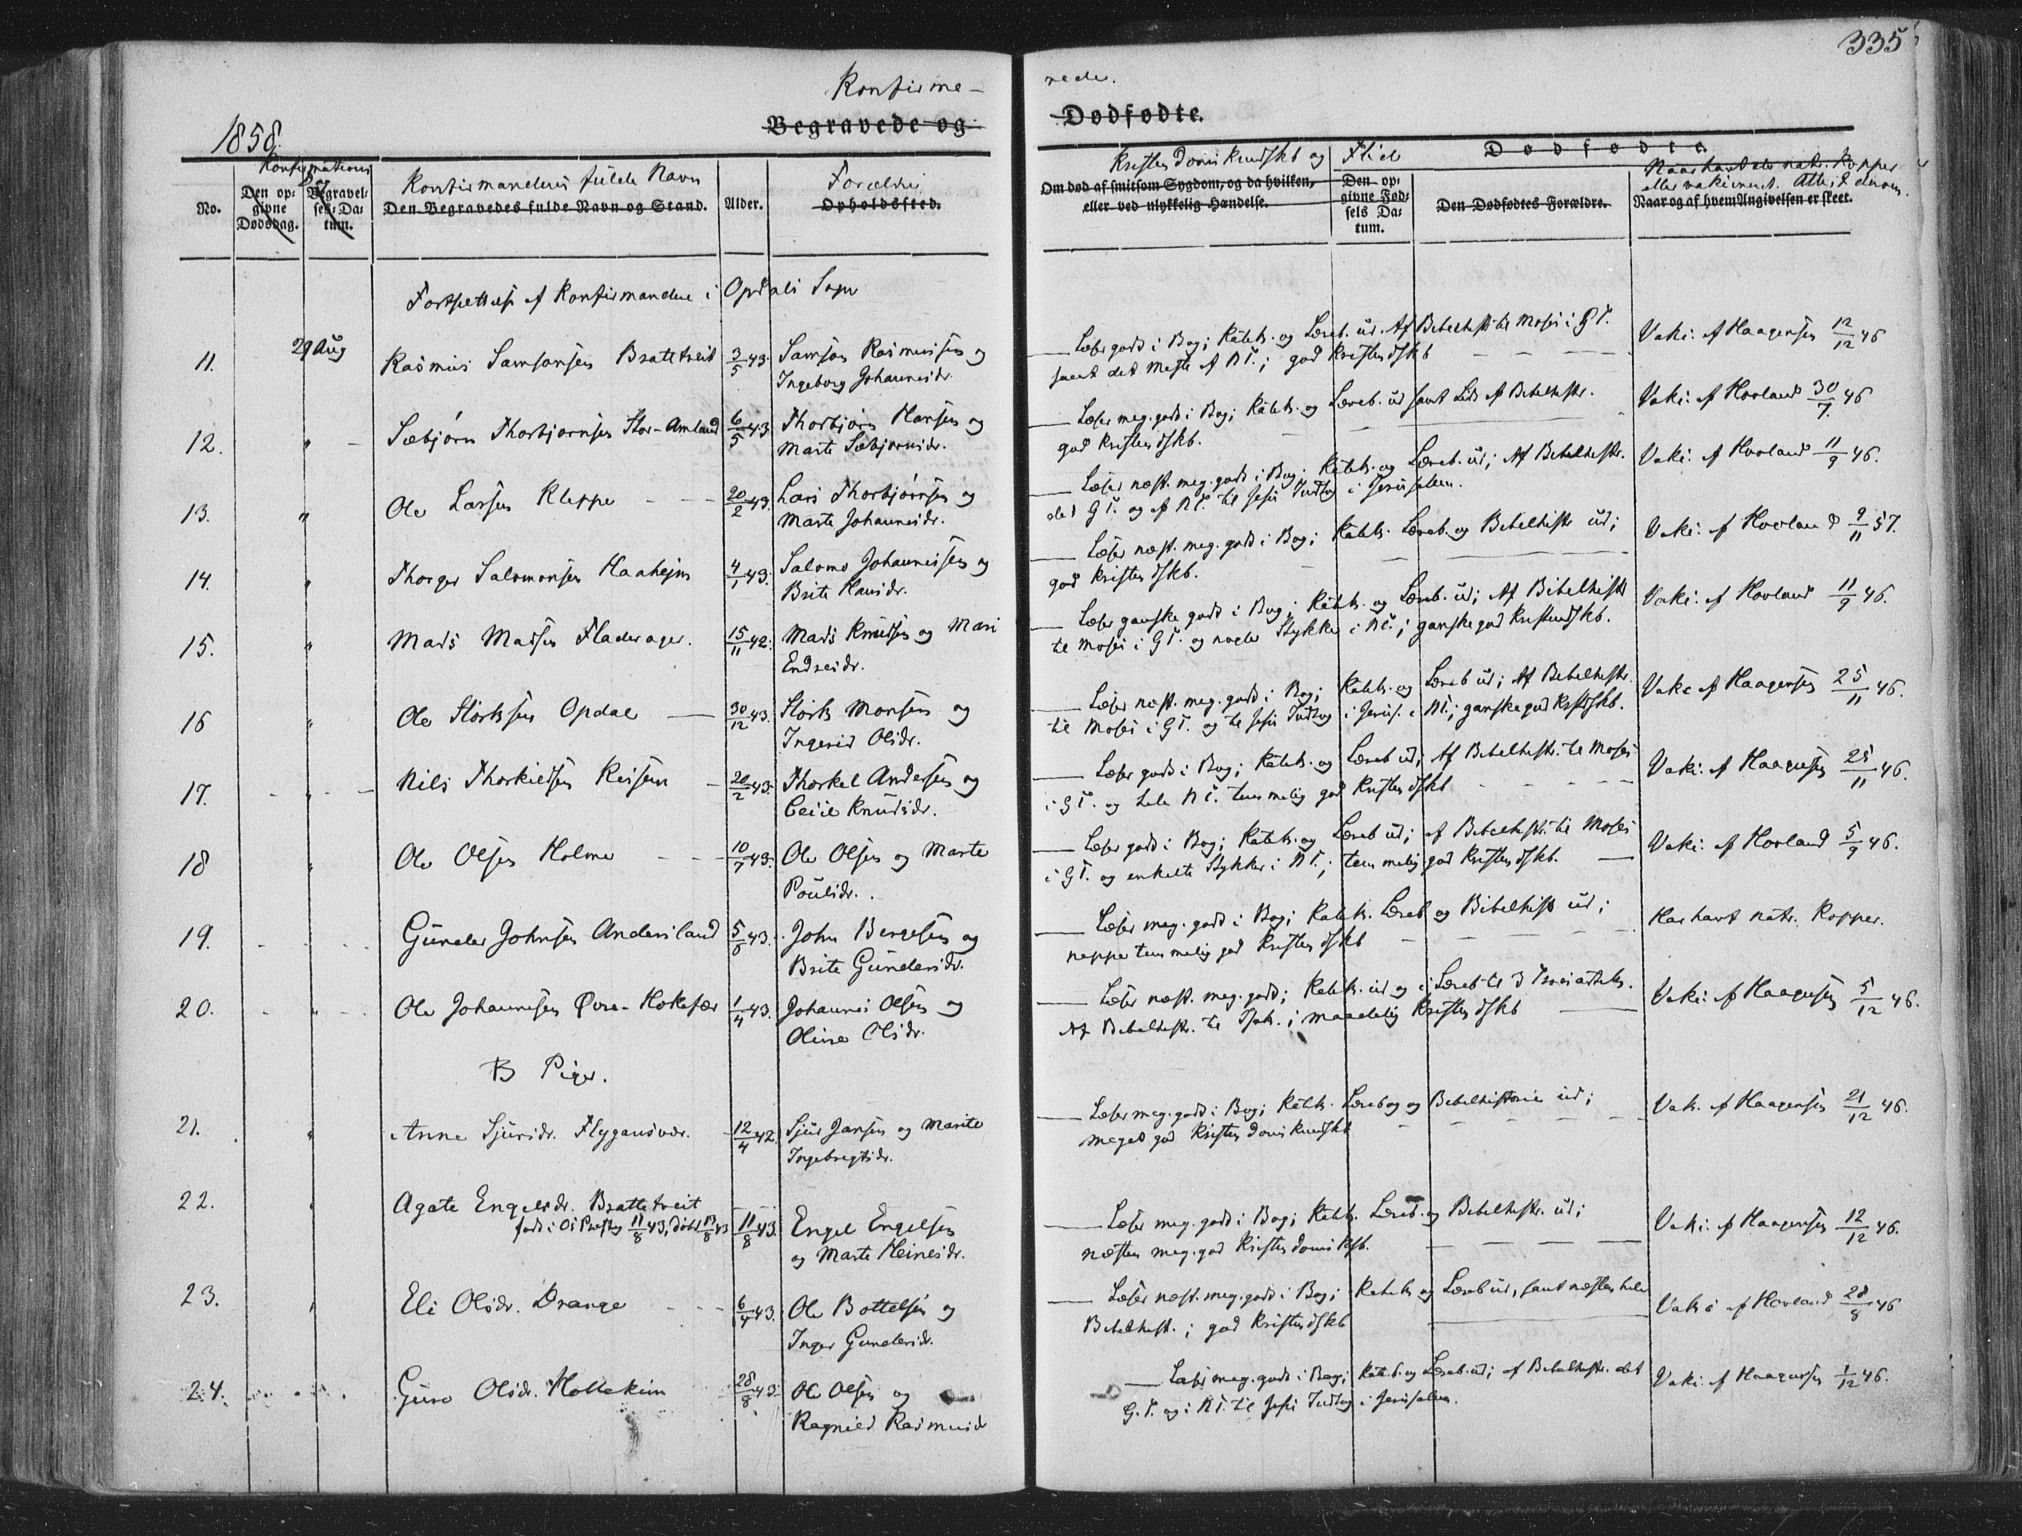 335
Konfirme-
rede.
Begravede og
Dødfødte.
1858.
Konfirmations
Dag
No.
Den op-
givne
Dødsdag.
Begravel-
ses-Da-
tum.
Konfirmandens fulde Navn
Den Begravedes fulde Navn og Stand.
Alder.
Forældre
Opholdssted.
Kristendomskundskb og Flid
Om død af smitsom Sygdom, og da hvilken,
eller ved ulykkelig Hændelse.
Dødfødte.
Den op-
givne Fød-
sels Da-
tum.
Den Dødfødtes Forældre.
Naar havt de nat. Kopper
eller vakineret. Attest derom.
Naar og af hvem Angivelsen er skeet.
Fortsættelse af Konfirmandene i Opdals Sogn
11. 29 Aug Rasmus Samsonsen Brattetveit 3/5 43. Samson Rasmussen og
Ingeborg Johannesdr.
Læser godt i Bog; Katek. og Læreb. ud. Af Bibelhist. til Moses i GT.
samt det meste af NT.; god Kristendskb
Vaki. af Haagensen 12/12 46
12. " Sæbjørn Thorbjørnsen Stor-Amland 6/5 43 Thorbjørn Hansen og
Marte Sæbjørnsdr.
Læser meg. godt i Bog; Katek. og Læreb. ud samt Lidt af Bibelhistr.
god Kristendskb.
Vaki. af Hovland 30/7 46
13. " Ole Larsen Kleppe 20/2 43. Lars Thorbjørnsen og
Marte Johannesdr.
Læser næst. meg. godt i Bog; Katek. og Læreb. ud; Af Bibelhistr.
det GT. og af NT. til Jesu Indtog i Jerusalem.
Vaki. af Hovland 11/9 46.
14. " Thorger Salomonsen Haahejm 4/1 43. Salomo Johannessen og
Brite Hansdr.
Læser næst. meg. godt i Bog; Katek. Læreb. og Bibelhistr ud;
god Kristendskb.
Vaki. af Hovland 9/11 57.
15. " Mads Madsen Fladerager. 15/11 42. Mads Knudsen og Mari
Endresdr.
Læser ganske godt i Bog; Katek. og Læreb. ud; Af Bibelhistr
til Moses i GT. og nogle Stykker i NT.; ganske god Kristendskb.
Vaki. af Hovland 11/9 46.
16 " Ole Størksen Opdal 30/12 43. Størk Monsen og
Ingerid Olsdr.
Læser næst. meg. godt i Bog; Katek. og Læreb ud; Af Bibelhistr.
til Moses i GT. og til Jesu Indtog i Jerus. i NT.; ganske god Krstdskb.
Vaki. af Haagensen 25/11 46.
17. " Nils Thorkildsen Reisen 20/2 43. Thorkel Andersen og
Cecile Knudsdr.
Læser godt i Bog; Katek. og Læreb ud; Af Bibelhistr. til Moses
i GT. og hele NT. temmelig god Kristendskb
Vaki. af Haagensen 25/11 46.
18 " Ole Olsen Holme 10/7 43. Ole Olsen og Marte
Poulsdr.
Læser godt i Bog; Katek. og Læreb ud; af Bibelhistr. til Moses
i GT. og enkelte Stykker i NT.; temmelig god Kristendskb.
Vaki. af Hovland 5/9 46.
19. " Gunder Johnsen Andersland 5/8 43. John Bergesen og
Brite Gundersdr.
Læser meg. godt i Bog; Katek. Læreb og Bibelhist ud;
neppe temmelig god Kristendskb
Har havt natr. Kopper.
20. " Ole Johannesen Øvre-Hokefær 1/4 43. Johannes Olsen og
Oline Olsdr.
Læser næst. meg. godt; Katek. ud og i Læreb til 3 Troesartik.
Af Bibelhistr. til Isak. i maadelig Kristendskb
Vaki. af Haagensen 5/12 46.
B Piger.
21. " Anne Sjursdr. Flygansvær. 12/4 42. Sjur Jansen og Marite
Ingebregtsdr.
Læser meg. godt i Bog; Katek. Læreb og Bibelhistorie ud;
meget god Kristendomskundskb
Vak. af Haagensen 21/12 46.
22. " Agate Engelsdr. Brattetveit
født i Os Prestg 11/8 43, døbt 13/8 43
11/8 43. Engel Engelsen
og Marte Heinesdr.
Læser meg. godt i Bog; Katek. Læreb. og Bibelhistr. ud;
næsten meg. god Kristendomskskb.
Vaki. af Haagensen 12/12 46.
23. " Eli Olsdr. Drange 6/4 43. Ole Bottelsen og
Inger Gundersdr.
Læser næst. meg. godt i Bog; Katek og Læreb ud, samt næsten hele
Bibelhist.; god Kristendskb
Vaki af Hovland 28/8 46
24. Guro Olsdr. Hollekim 28/8 43. Ole Olsen og
Ragnild Rasmusdr
Læser meg. godt i Bog; Katek. og Læreb. ud; af Bibelhistr. det
G.T. og i NT. til Jesu Indtog i Jerusalem.
Vaki. af Haagensen 1/12 46.